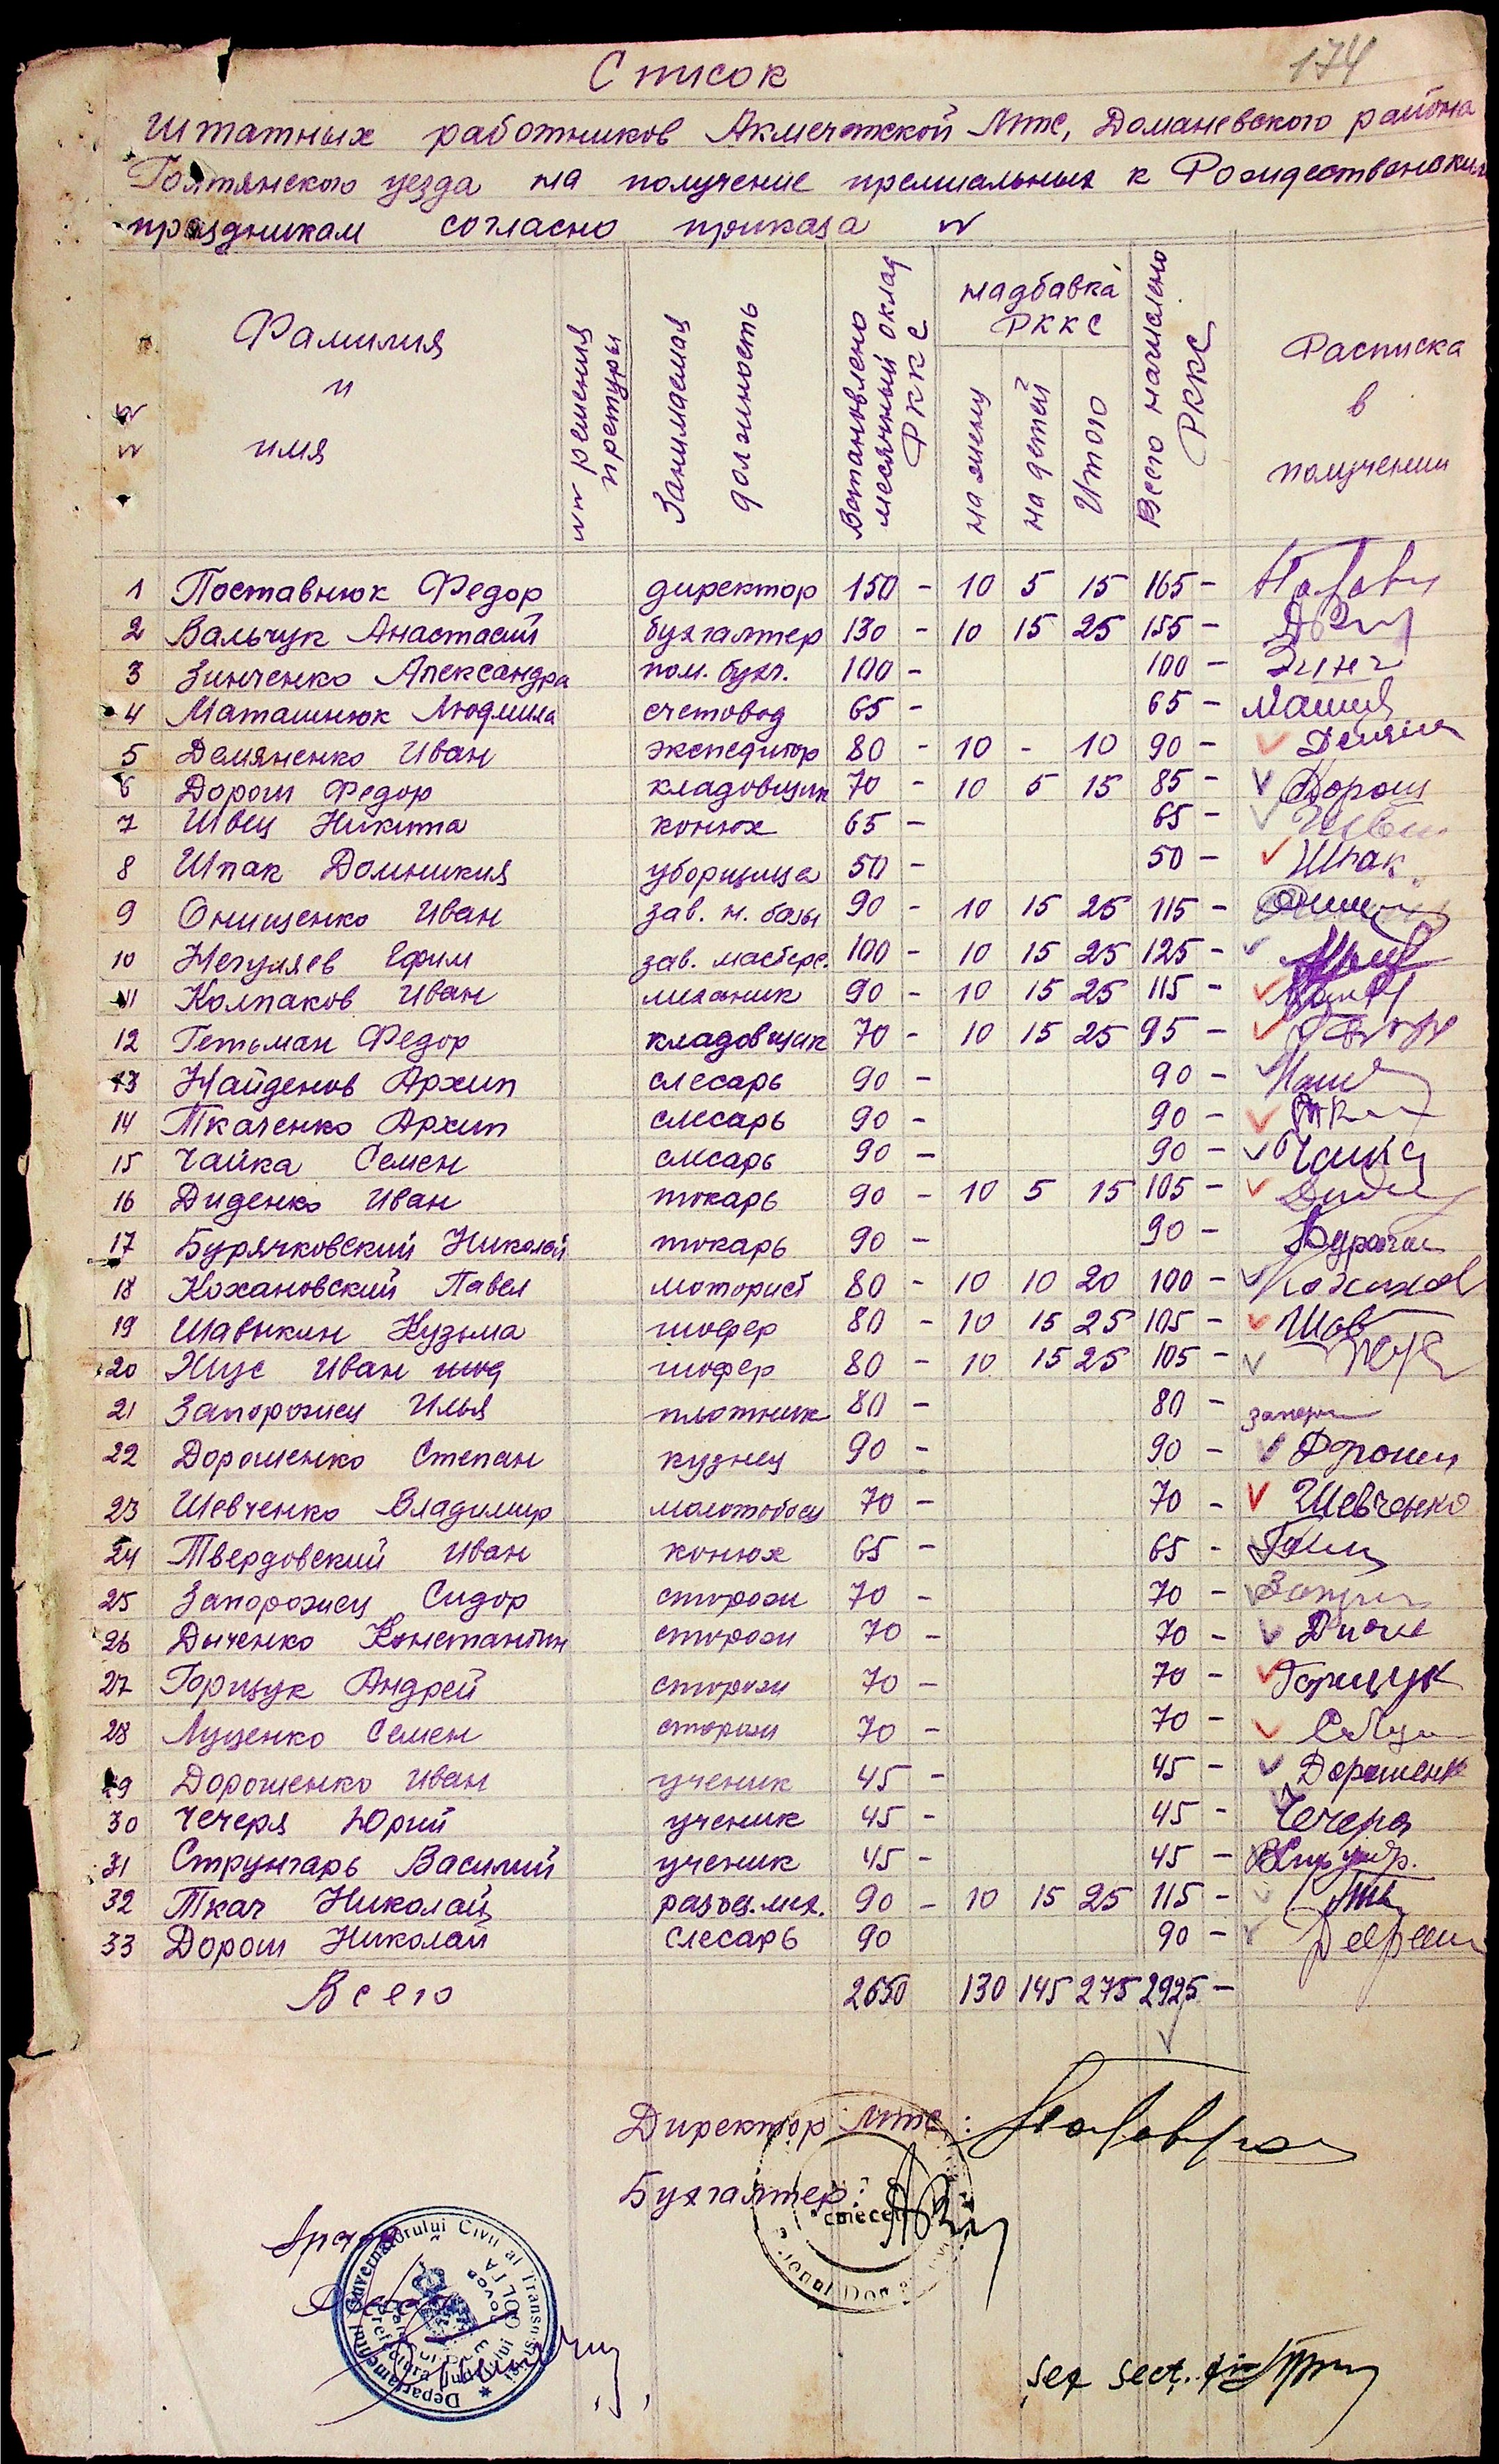 174
Список
Штатных работников Акмечетской Мтс, Доманевского района
Голтянского уезда на получение премиальных к Рождественским
праздникам согласно приказа №
№ №
Фамилия и имя
№№ решения претуры
Занимаемая должность
Установлено месячный оклад РККС
надбавка РККС
на жену
на детей
Итого
Всего начислено РККС
Расписка в получении
1 Поставнюк Федор директор 150 - 10 5 15 165 -
2 Вальчук Анастасий бухгалтер 130 - 10 15 25 155 -
3 Зинченко Александра пом. бухг. 100 - 100 - Зинч
4 Маташнюк Людмила счетовод 65 - 65 -
5 Демяненко Иван экспедитор 80 - 10 - 10 90 -
6 Дорош Федор кладовщик 70 - 10 5 15 85 - Дорош
7 Швец Никита конюх 65 - 65 - Швец
8 Шпак Домникия уборщица 50 - 50 - Шпак
9 Онищенко Иван зав. н. базы 90 - 10 15 25 115 -
10 Негуляев Ефим зав. мастерс. 100 - 10 15 25 125 -
11 Колпаков Иван механик 90 - 10 15 25 115 -
12 Гетьман Федор кладовщик 70 - 10 15 25 95 -
13 Найденов Архип слесарь 90 - 90 -
14 Ткаченко Архип слесарь 90 - 90 -
15 Чайка Семен слесарь 90 - 90 - Чайка
16 Диденко Иван токарь 90 - 10 5 15 105 -
17 Бурячковский Николай токарь 90 - 90 -
18 Кохановский Павел моторист 80 - 10 10 20 100 - Коханов
19 Шавыкин Кузьма шофер 80 - 10 15 25 105 - Шав
20 Жус Иван шофер 80 - 10 15 25 105 -
21 Запорожец Илья плотник 80 - 80 - запор
22 Дорошенко Степан кузнец 90 - 90 - Дорошен
23 Шевченко Владимир молотобоец 70 - 70 - Шевченко
24 Твердовский Иван конюх 65 - 65 -
25 Запорожец Сидор сторож 70 - 70 -
26 Дыченко Константин сторож 70 - 70 - Диче
27 Горищук Андрей сторож 70 - 70 - Горищук
28 Луценко Семен сторож 70 - 70 -
29 Дорошенко Иван ученик 45 - 45 - Дорошенк
30 Чечеря Юрий ученик 45 - 45 - Чечеря
31 Струнгарь Василий ученик 45 - 45 -
32 Ткач Николай разъез. мех. 90 - 10 15 25 115 -
33 Дорош Николай слесарь 90 90 -
Всего 2650 130 145 275 2925 -
Директор Мтс:
Бухгалтер:
Departamentul Guvernatorului Civil al Transnistriei
Prefectura Judetului
GOLTA
șef sect. fin